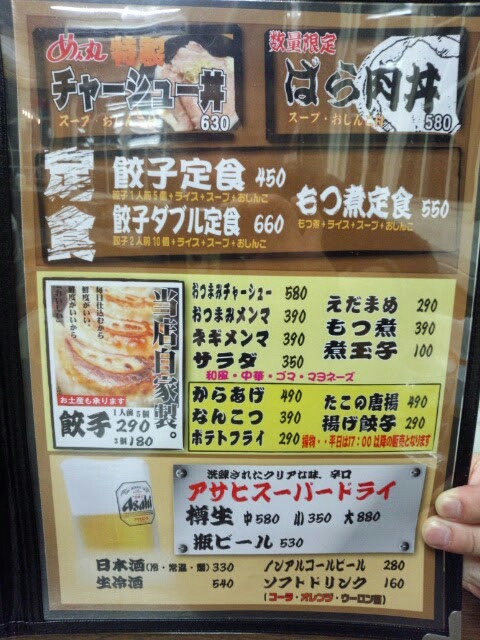 めん丸 特製
チャーシュー丼
スープ・おしんこ 630
数量限定
ばら肉丼
スープ・おしんこ 580
定食
餃子定食 450
餃子1人前5個+ライス+スープ+おしんこ
餃子ダブル定食 660
餃子2人前10個+ライス+スープ+おしんこ
もつ煮定食 550
もつ煮+ライス+スープ+おしんこ
毎日仕込むから
鮮度がいい、
鮮度がいいから
おいしい。
当店自家製。
お土産も承ります
餃子 1人前5個 290
3個 180
おつまみチャーシュー 580
おつまみメンマ 390
ネギメンマ 390
サラダ 350
和風・中華・ゴマ・マヨネーズ
えだまめ 290
もつ煮 390
煮玉子 100
からあげ 490
なんこつ 390
ポテトフライ 290
たこの唐揚 490
揚げ餃子 290
揚物・・平日は17:00以降の販売となります
Asahi
洗練されたクリアな味、辛口
アサヒスーパードライ
樽生 中580 小350 大880
瓶ビール 530
日本酒(冷・常温・燗) 330
生冷酒 540
ノンアルコールビール 280
ソフトドリンク 160
(コーラ・オレンジ・ウーロン茶)